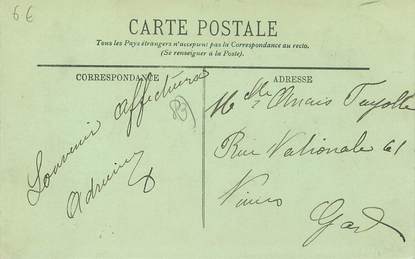 6€
CARTE POSTALE
Tous les Pays étrangers n'acceptent pas la Correspondance au recto.
(Se renseigner à la Poste).
CORRESPONDANCE
Souvenir affectueux
ADRESSE
Melle Anais
Rue Nationale 61
Nimes
Gard